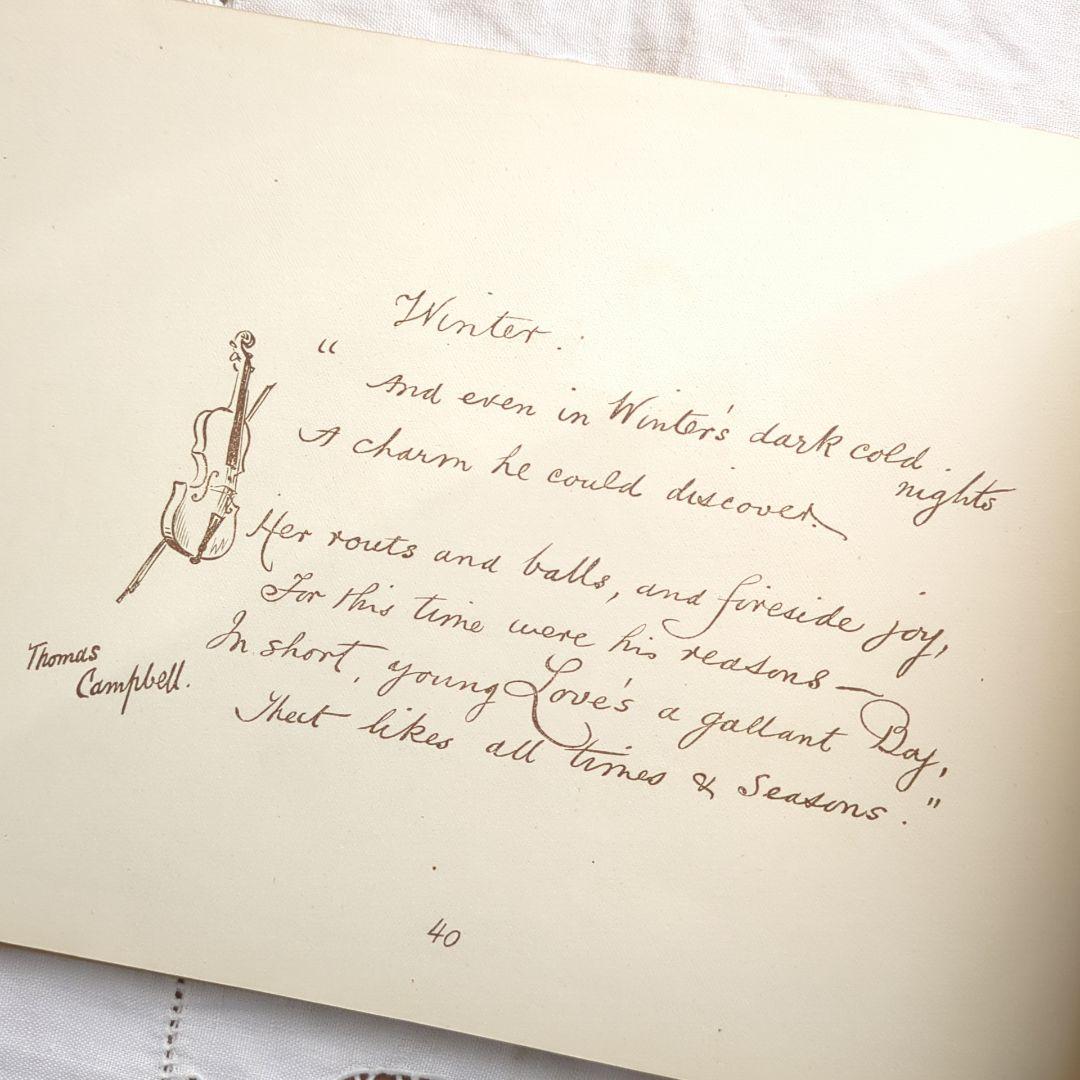 Winter.
“ And even in Winter's dark cold nights
A charm he could discover.
Her routs and balls, and fireside joy,
For this time were his reasons —
In short, young Love's a gallant Boy,
That likes all times & Seasons."
Thomas
Campbell.
40